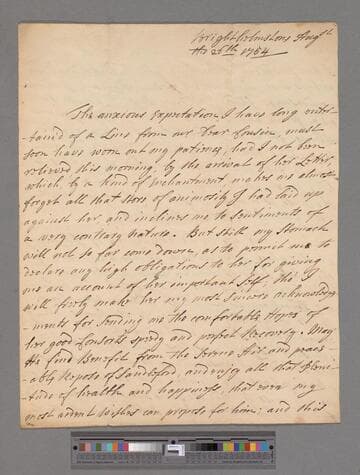 Brighthelmstone August
the 25th 1754
The anxious Expectation I have long enter-
-tain'd of a Line from our Dear Cousin, must
soon have worn out my patience, had I not been
relieved this morning, by the arrival of her Letter,
which by a kind of Enchantment makes me almost
forget all that Store of animosity I had laid up
against her, and inclines me to Sentiments of
a very contrary Nature. But still my Stomach
will not so far come down, as to permit me to
declare any high obligations to her for giving
me an account of her important Self, tho' I
will freely make her my most Sincere acknowledg-
-ments for Sending me the comfortable Hopes of
her good Consorts speedy and perfect Recovery. May
He find Benefit from the Serene Air and peace-
-able Repose of Sandleford and enjoy all that Pleni-
-tude of health and happiness that even my
most ardent wishes can propose for him: and this